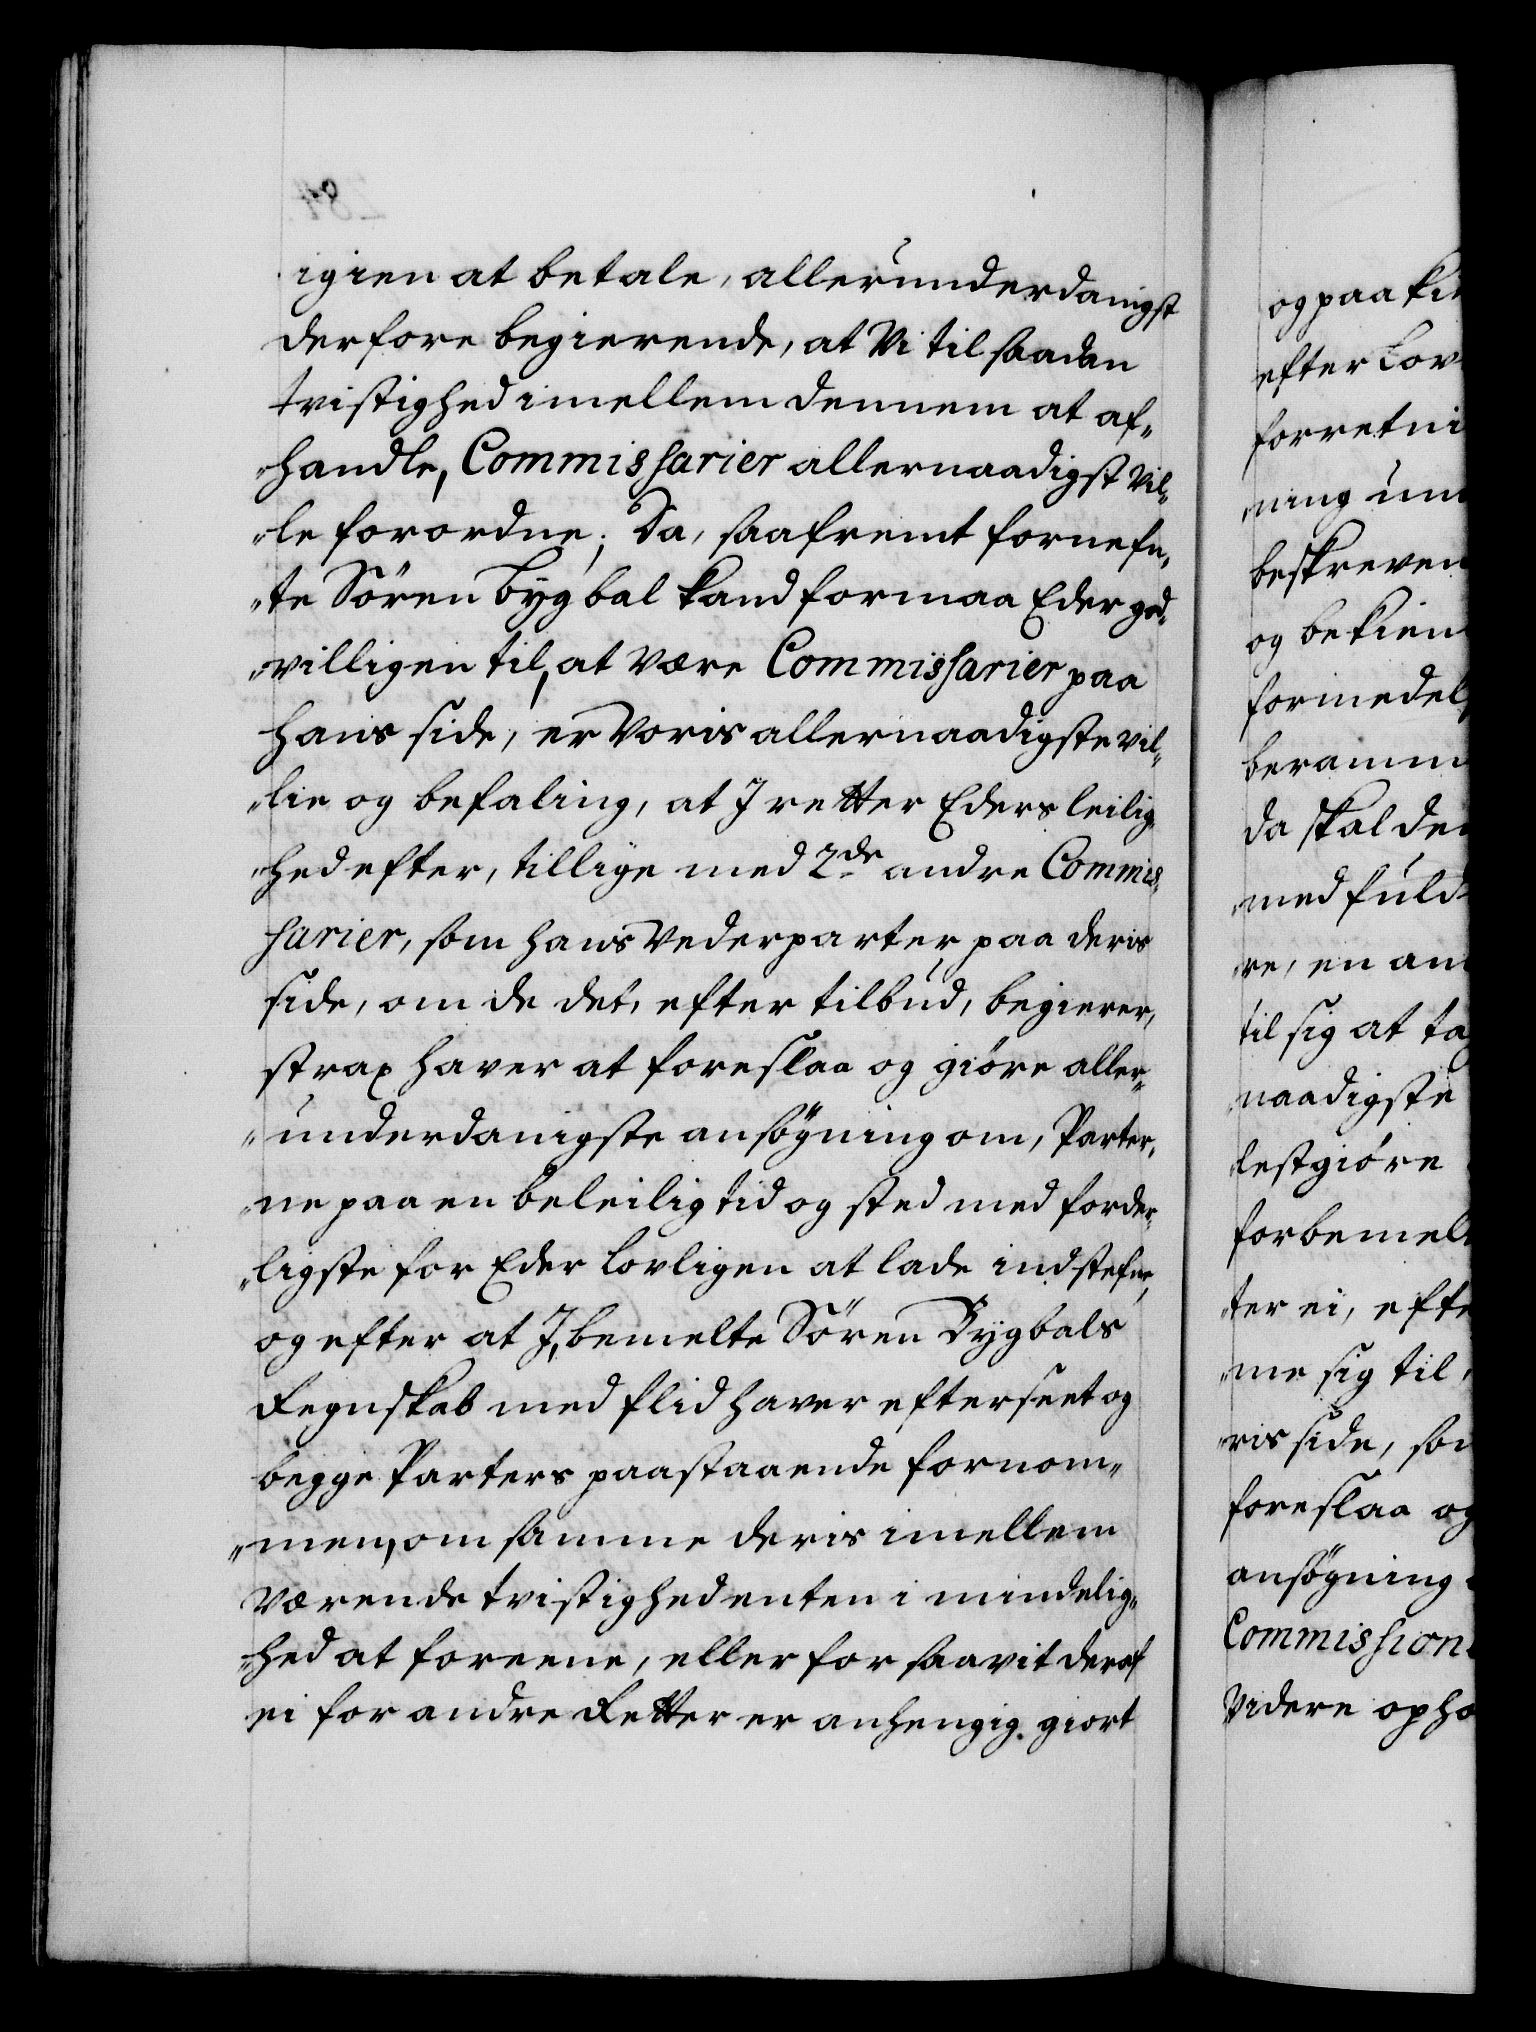 igien at betale, allerunderdanigst
derfore begierende, at Vi til saadan
tvistighed imellem dennem at af„
„handle, Commissarier allernaadigst vil„
„le forordne; Da, saafremt fornefn„
„te Sören Bygbal kand formaa Eder god„
„villigen til, at være Commissarier paa
hans side, er Voris allernaadigste vil„
„lie og befaling, at J retter Eders leilig„
„hed efter, tillige med 2de andre Commis„
sarier, som hans Vederparter paa deris
side, om de det, efter tilbud, begierer,
strax haver at foreslaa og giöre aller„
„underdanigste ansögning om, Parter„
„ne paa en beleilig tid og sted med forder„
„ligste for Eder lovligen at lade indstefne,
og efter at J, bemelte Sören Bygbals
Regnskab med flid haver efterseet og
begge Parters paastaaende fornom„
„men, om samme deris imellem
værende tvistighed enten i mindelig„
„hed at foreene, eller for saavit deraf
ei for andre Retter er anhengig giort
og paa
efter Lov
forretni
„ning
beskreven
og bekien
formedel
beramm
da skal de
med fuld
„re, en an
til sig at ta
naadigste
lestgiöre
forbemel
„ter ei, efte
„me sig til
„ris side, som
foreslaa og
ansögning
Commission
videre opho